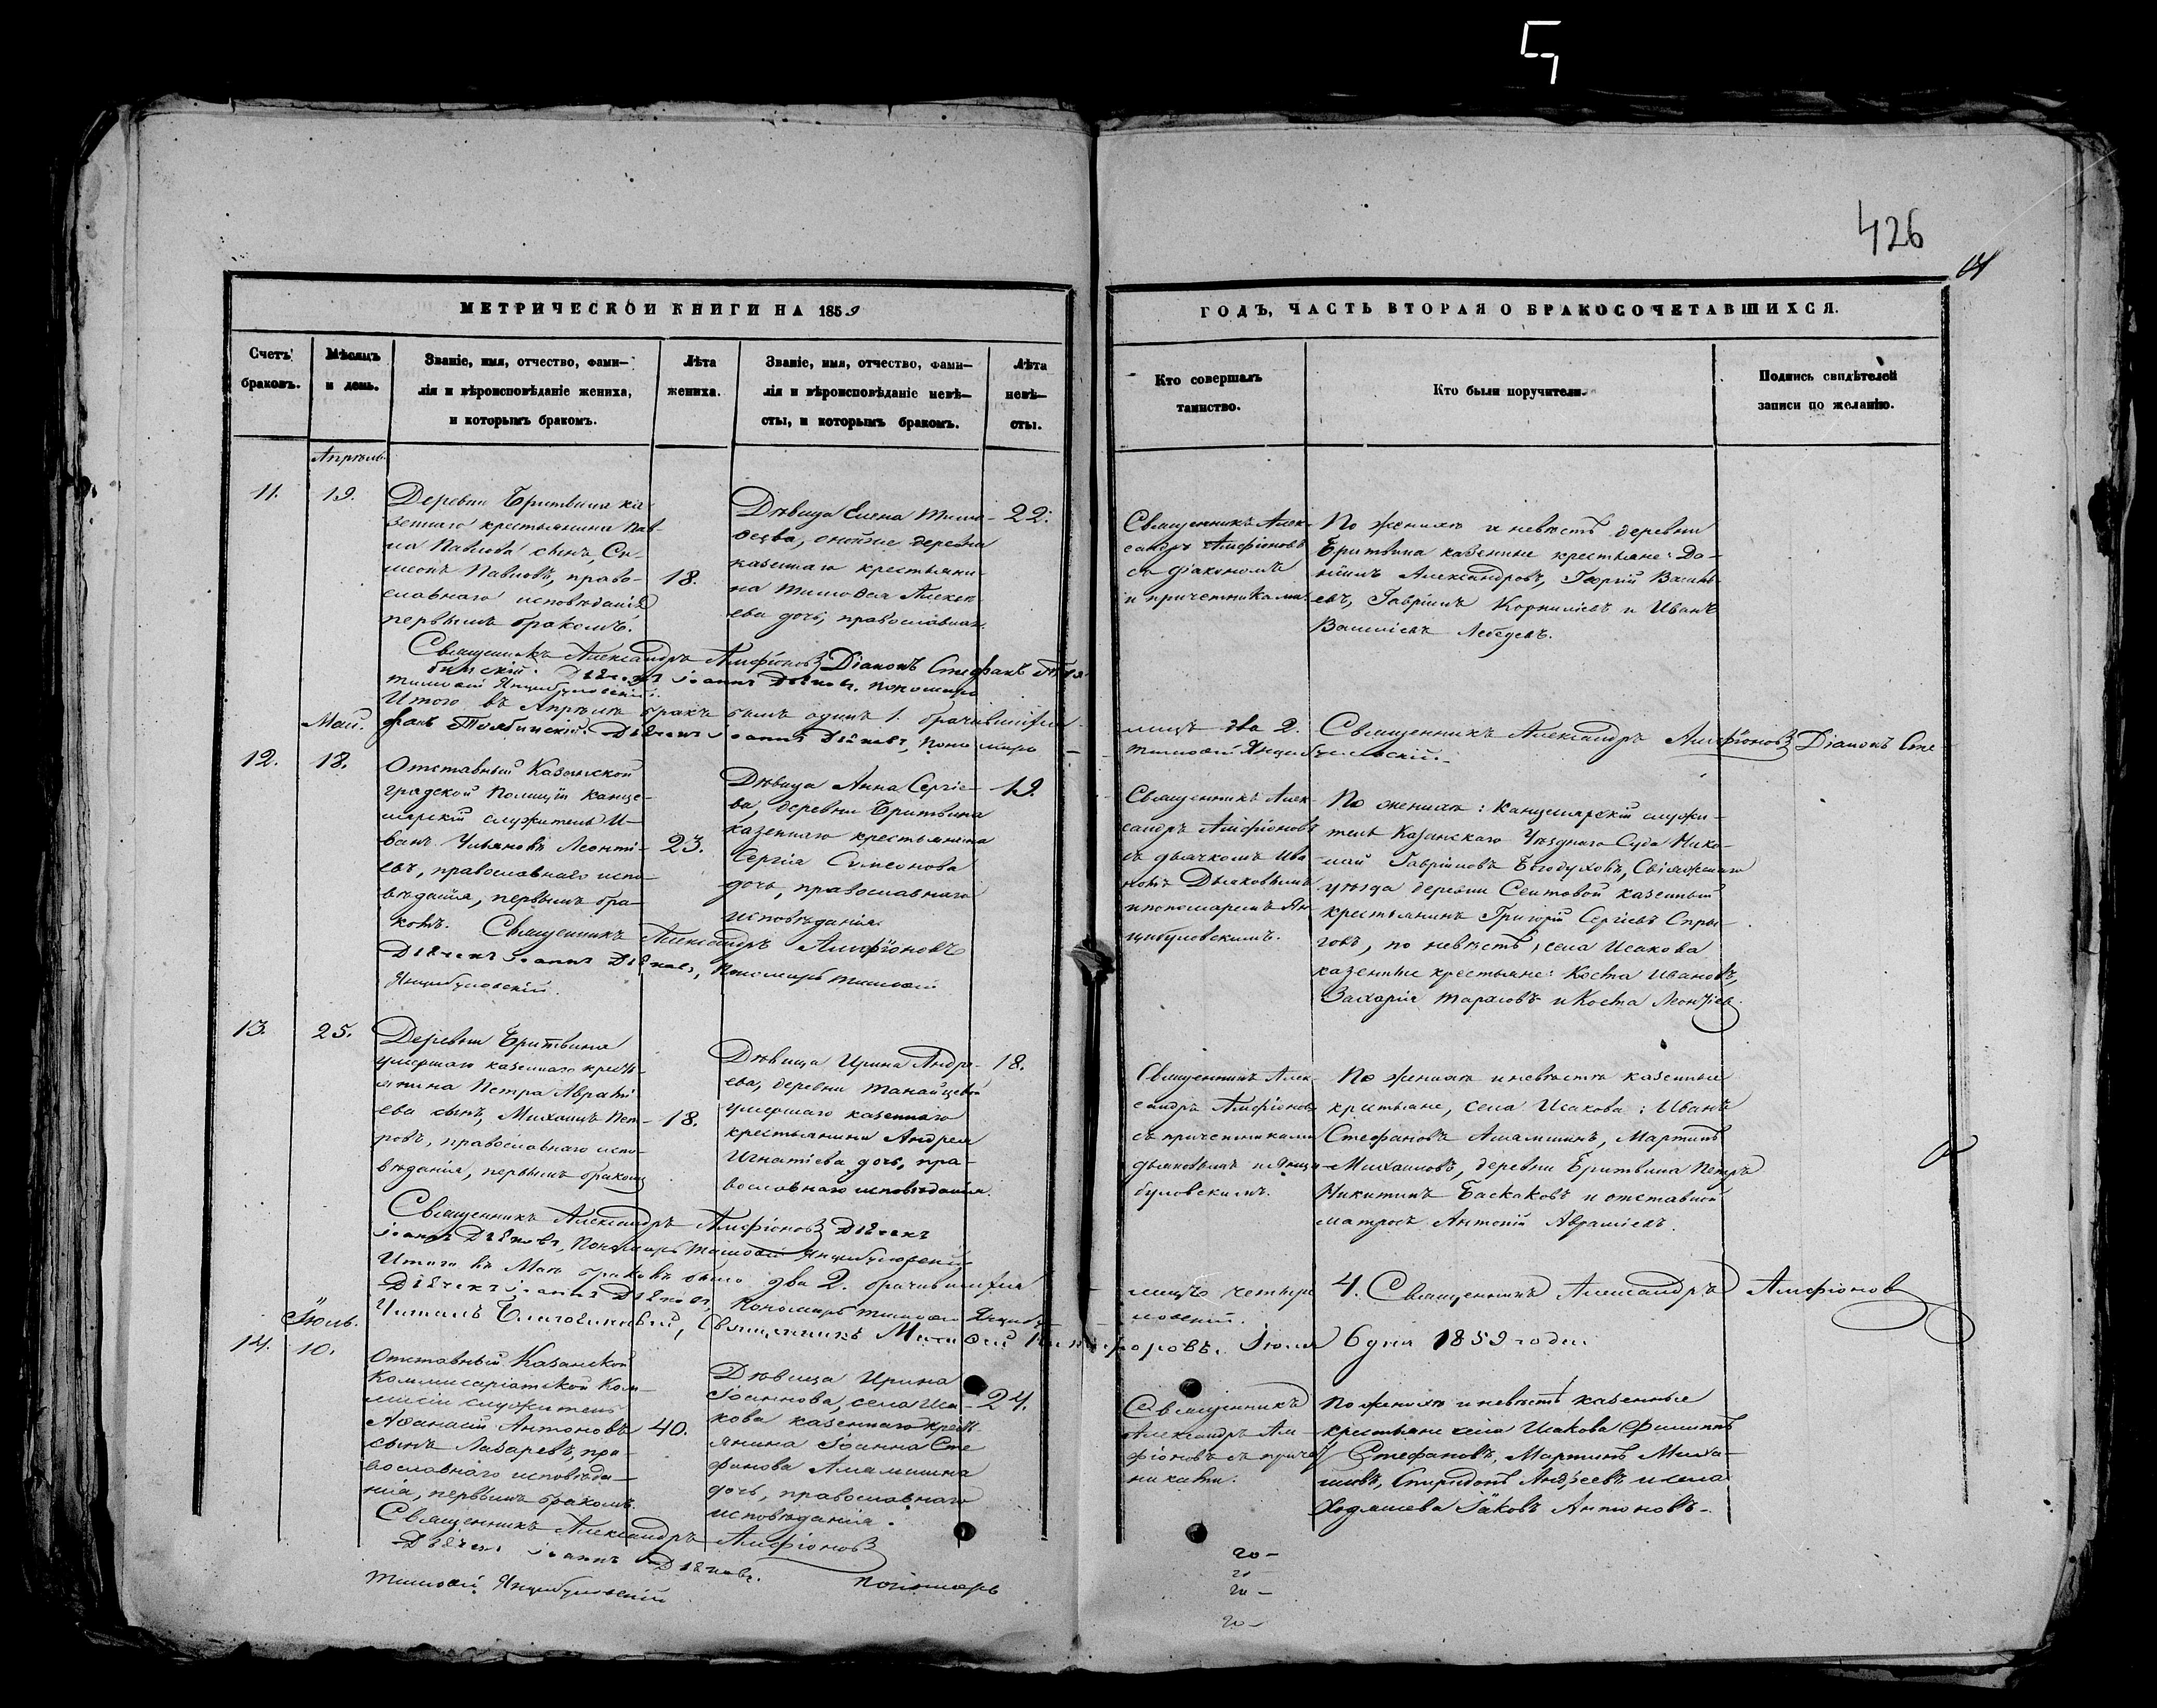 426
МЕТРИЧЕСКОЙ КНИГИ НА 1859
ГОДЪ, ЧАСТЬ ВТОРАЯ О БРАКОСОЧЕТАВШИХСЯ.
Счетъ
браковъ.
Мѣсяцъ
и день.
Званіе, имя, отчество, фами-
лія и вѣроисповѣданіе жениха,
и которымъ бракомъ.
Лѣта
жениха.
Званіе, имя, отчество, фами-
лія и вѣроисповѣданіе невѣ-
сты, и которымъ бракомъ.
Лѣта
невѣ-
сты.
Кто совершалъ
таинство.
Кто были поручители.
Подпись свидѣтелей
записи по желанію.
Апрѣль.
11.
19.
Деревни Бритвина ка-
зеннаго крестьянина Пав-
ла Павлова сынъ, Си-
меонъ Павловъ, право-
славнаго исповѣданія
первымъ бракомъ.
18.
Дѣвица Елена Тимо-
ѳеева, деревни
казеннаго крестьяни-
на Тимоѳея Алексѣ-
ева дочь, православнаг.
22.
Священникъ Алек-
сандръ Амфіоновъ
съ діакономъ
и причетниками.
По женихѣ и невѣстѣ деревни
Бритвина казенные крестьяне: Да-
ніилъ Александровъ, Георгій Василь-
евъ, Гавріилъ Корниліевъ и Иванъ
Василіевъ Лебедевъ.
Священникъ Александръ Амфіоновъ Діаконъ Стефанъ
Тимоѳей Янцибуловскій.
Итого въ Апрѣлѣ бракъ былъ одинъ 1. брачившихся
лицъ два 2. Священникъ Александръ Амфіоновъ Діаконъ Сте
Май.
фанъ Дьячекъ Іоаннъ Дьяковъ, Пономарь
Тимоѳей Янцибуловскій.
12.
18.
Отставный Казанской
градской Полиціи канце-
лярскій служитель И-
ванъ Ульяновъ Леонті-
евъ, православнаго испо-
вѣданія, первымъ бра-
комъ.
23.
Дѣвица Анна Сергіе-
ва, деревни Бритвина
казеннаго крестьянина
Сергія Симеонова
дочь, православнаго
исповѣданія.
19.
Священникъ Алек-
сандръ Амфіоновъ
съ дьячкомъ Ива-
номъ Дьяковымъ
и пономаремъ Ян-
цибуловскимъ.
По женихѣ: канцелярскій служи-
тель Казанскаго Уѣзднаго Суда Нико-
лай Гавріиловъ Богодуховъ, Свіяжскаго
уѣзда деревни Сеитовой казенный
крестьянинъ Григорій Сергіевъ Спры-
говъ, по невѣстѣ, села Исакова
казенные крестьяне: Косма Ивановъ,
Захарія Тарховъ и Косма Леонтіев.
Священникъ Александръ Амфіоновъ
Дьячекъ Іоаннъ Дьяковъ, Пономарь Тимоѳей
Янцибуловскій.
13.
25.
Деревни Бритвина
умершаго казеннаго кресть-
янина Петра Аврамі-
ева сынъ, Михаилъ Пет-
ровъ, православнаго испо-
вѣданія, первымъ бракомъ
18.
Дѣвица Ирина Андре-
ева, деревни Танайцевой
умершаго казеннаго
крестьянина Андрея
Игнатіева дочь, пра-
вославнаго исповѣданія.
18.
Священникъ Алек-
сандръ Амфіоновъ
съ причетниками
Дьяковымъ и Янци-
буловскимъ.
По женихѣ и невѣстѣ казенные
крестьяне, села Исакова: Иванъ
Стефановъ Аламшинъ, Мартинъ
Михаиловъ, деревни Бритвина Петръ
Никитинъ Баскаковъ и отставной
матросъ Антоній Авраміевъ.
Священникъ Александръ Амфіоновъ Дьячекъ
Іоаннъ Дьяковъ, Пономарь Тимоѳей Янцибуловскій
Итого въ Маѣ браковъ было два 2. брачившихся
лицъ четыре 4. Священникъ Александръ Амфіоновъ
Дьячекъ Іоаннъ Дьяковъ, Пономарь Тимоѳей Янцибу-
ловскій.
Іюль.
Читалъ Благочинный, Священникъ Никифоровъ. Іюля 6 дня 1859 года.
14.
10.
Отставный Казанской
Коммисаріатской Ком-
мисіи служитель
Аѳанасій Антоновъ
сынъ Лазаревъ, пра-
вославнаго исповѣда-
нія, первымъ бракомъ.
40.
Дѣвица Ирина
Іоаннова, села Иса-
кова казеннаго кресть-
янина Іоанна Сте-
фанова Аламшина
дочь, православнаго
исповѣданія.
24.
Священникъ
Александръ Ам-
фіоновъ съ причет
никами.
По женихѣ и невѣстѣ казенные
крестьяне села Исакова Филиппъ
Стефановъ, Мартинъ Миха-
иловъ, Спиридонъ Андреевъ и села
Ходяшева Іаковъ Антоновъ.
Священникъ Александръ Амфіоновъ
Дьячекъ Іоаннъ Дьяковъ. Пономарь
Тимоѳей Янцибуловскій